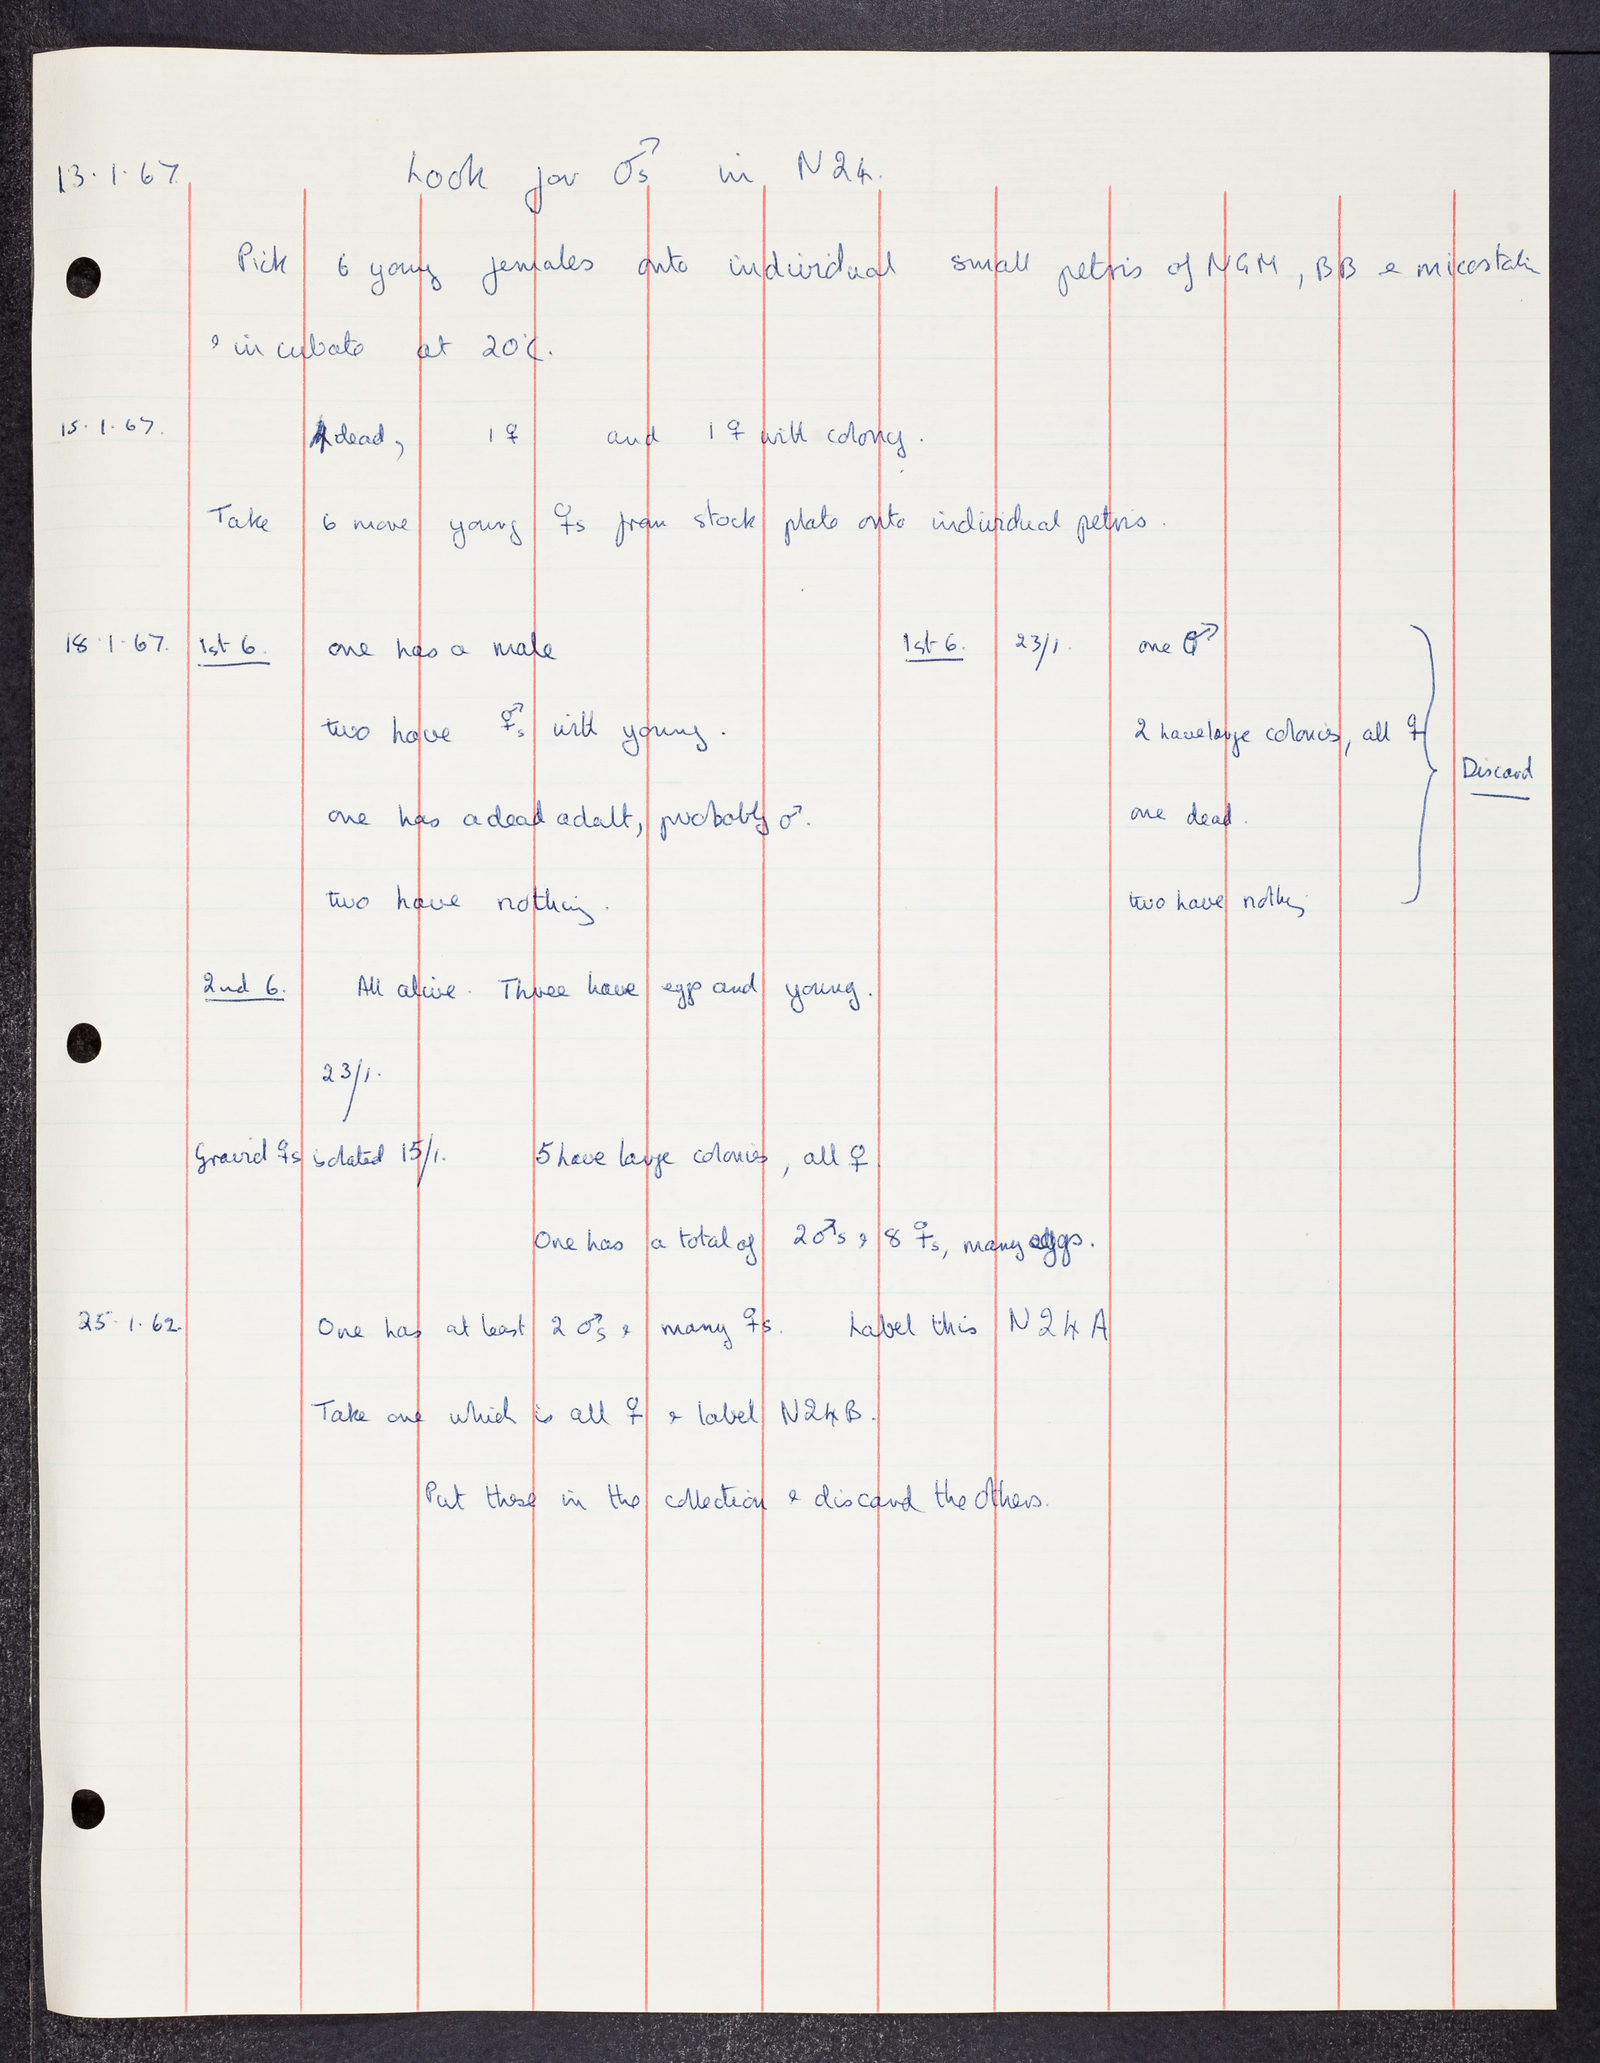 13.1.67. Look for ♂s in N24.
Pick 6 young females onto individual small petris of NGM, BB & micostatin
& incubate at 20°C.
15.1.67. 4 dead, 1♀ and 1♀ with colony.
Take 6 more young ♀s from stock plate onto individual petris.
18.1.67. 1st 6. one has a male
two have ⚥s with young.
one has a dead adult, probably ♂.
two have nothing.
1st 6. 23/1. one ♂
2 have large colonies, all ♀
one dead.
two have nothing
Discard
2nd 6. All alive. Three have eggs and young.
23/1.
Gravid ♀s isolated 15/1. 5 have large colonies, all ♀
One has a total of 2♂s & 8♀s, many eggs.
25.1.62. One has at least 2♂s & many ♀s. Label this N24A
Take one which is all ♀ & label N24B.
Put these in the collection & discard the others.